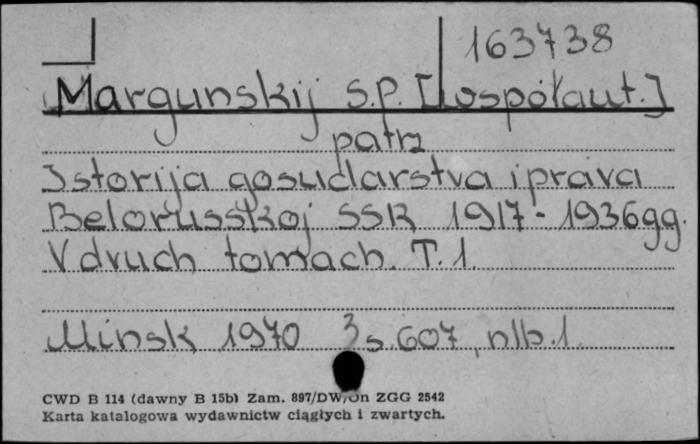 163738
Margunskij S.P. [współaut.]
patrz
Istorija gosudarstva i prava
Belorusskoj SSR 1917-1936gg.
V dvuch tomach. T. 1.
Minsk 1970 s. 607, nlb. 1
CWD B 114 (dawny B 15b) Zam. 897/DW/Un ZGG 2542
Karta katalogowa wydawnictw ciągłych i zwartych.